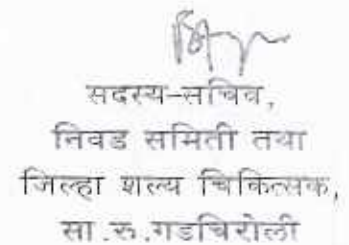 सदस्य-सचिव,
निवड समिती तथा
जिल्हा शल्य चिकित्सक,
सा.रु.गडचिरोली